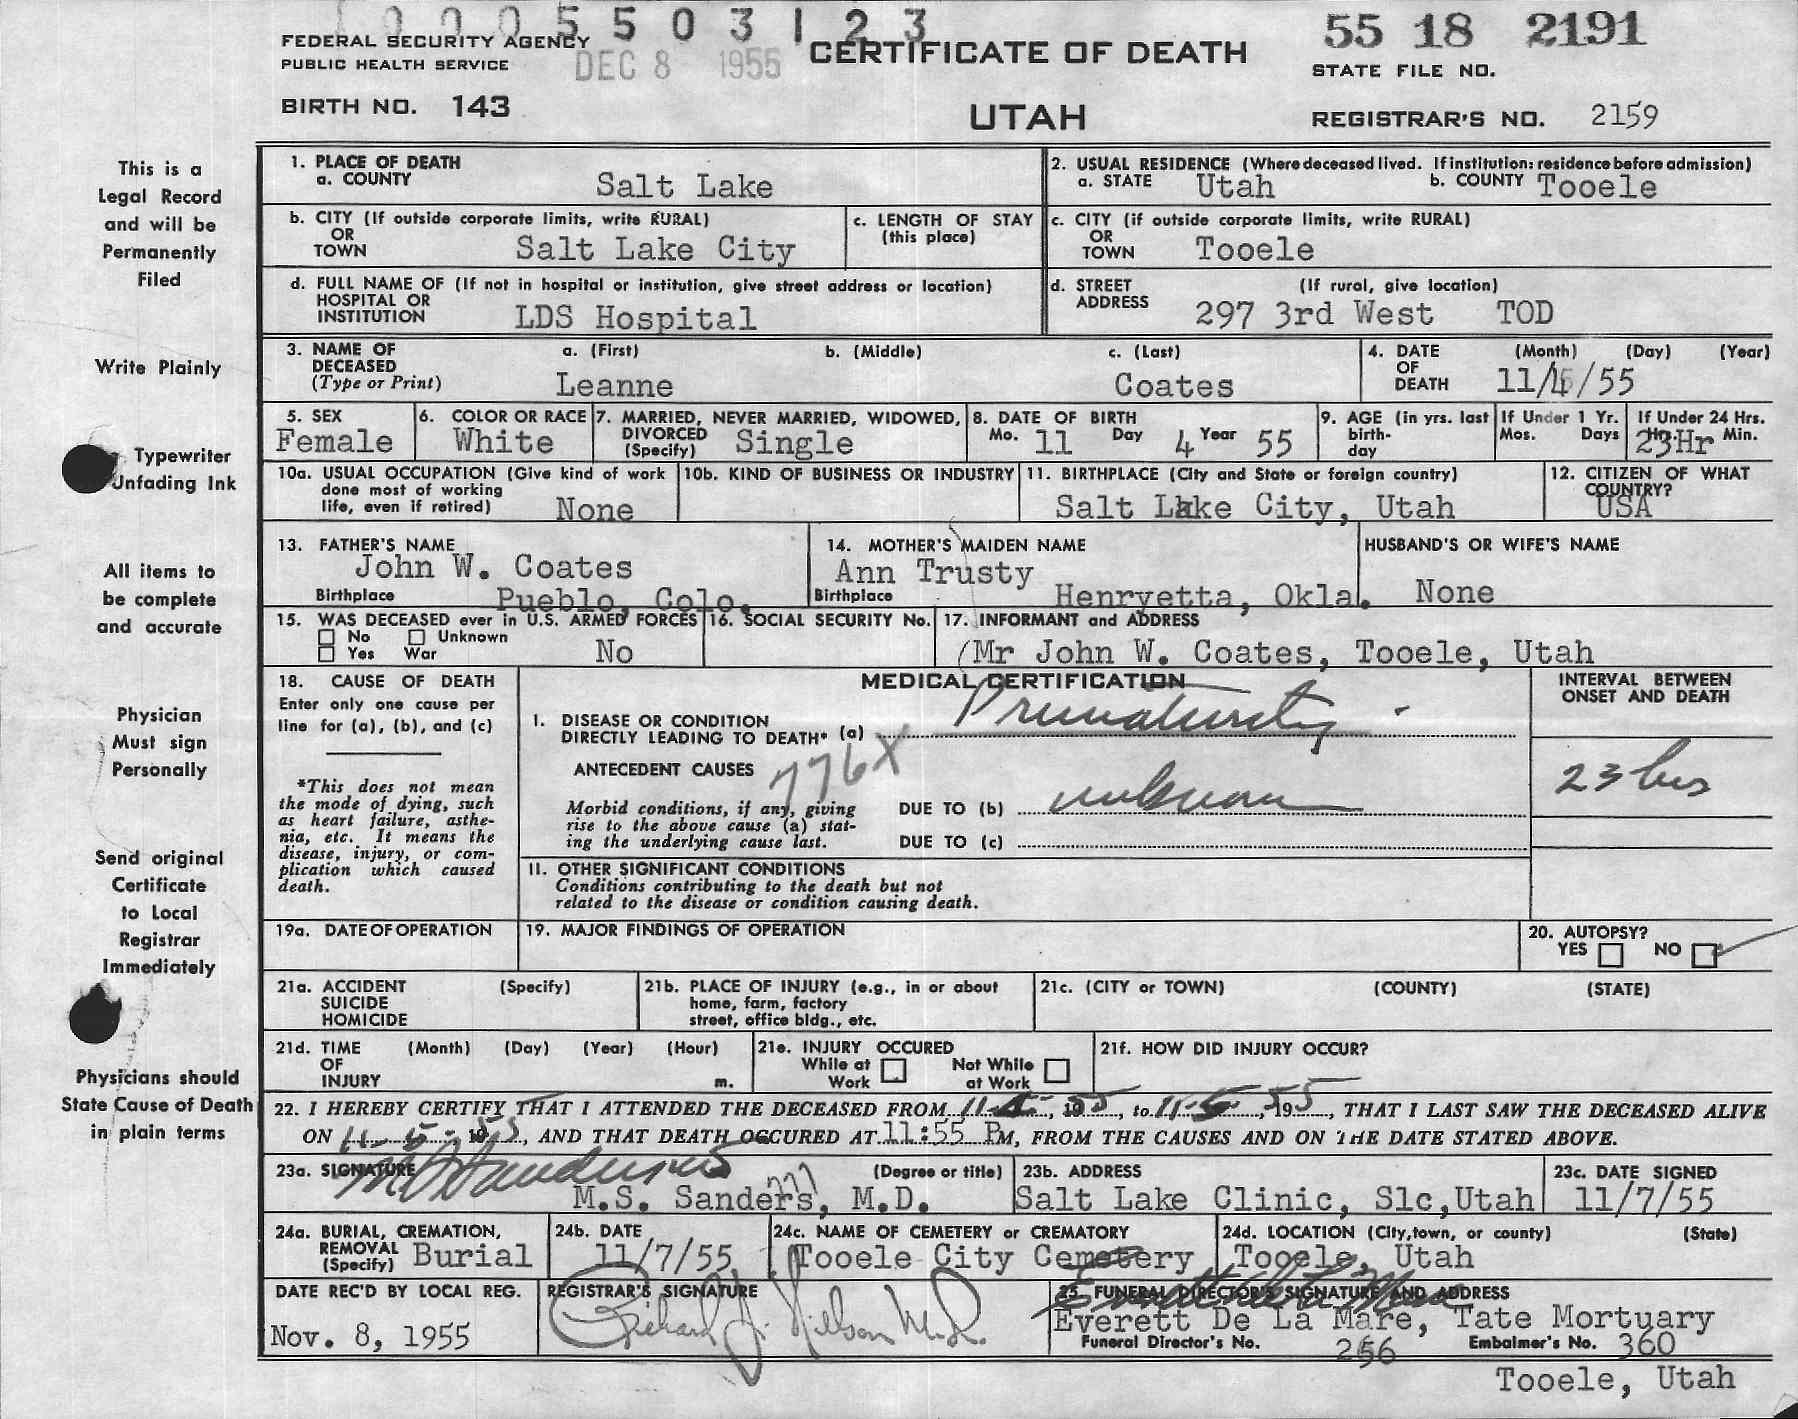 10005503123
55 18 2191
FEDERAL SECURITY AGENCY
PUBLIC HEALTH SERVICE
DEC 8 1955
CERTIFICATE OF DEATH
STATE FILE NO.
BIRTH NO. 143
UTAH
REGISTRAR'S NO. 2159
This is a
Legal Record
and will be
Permanently
Filed
Write Plainly
Typewriter
Unfading Ink
All items to
be complete
and accurate
Physician
Must sign
Personally
Send original
Certificate
to Local
Registrar
Immediately
Physicians should
State Cause of Death
in plain terms
1. PLACE OF DEATH
a. COUNTY Salt Lake
2. USUAL RESIDENCE (Where deceased lived. If institution: residence before admission)
a. STATE Utah b. COUNTY Tooele
b. CITY (If outside corporate limits, write RURAL)
OR
TOWN Salt Lake City
c. LENGTH OF STAY
(this place)
c. CITY (if outside corporate limits, write RURAL)
OR
TOWN Tooele
d. FULL NAME OF (If not in hospital or institution, give street address or location)
HOSPITAL OR
INSTITUTION LDS Hospital
d. STREET (If rural, give location)
ADDRESS 297 3rd West TOD
3. NAME OF a. (First) b. (Middle) c. (Last)
DECEASED
(Type or Print) Leanne Coates
4. DATE (Month) (Day) (Year)
OF
DEATH 11/5/55
5. SEX
Female
6. COLOR OR RACE
White
7. MARRIED, NEVER MARRIED, WIDOWED,
DIVORCED
(Specify) Single
8. DATE OF BIRTH
Mo. 11 Day 4 Year 55
9. AGE (in yrs. last
birth-
day
If Under 1 Yr.
Mos. Days
If Under 24 Hrs.
Hr. Min.
23Hr
10a. USUAL OCCUPATION (Give kind of work
done most of working
life, even if retired) None
10b. KIND OF BUSINESS OR INDUSTRY
11. BIRTHPLACE (City and State or foreign country)
Salt Lake City, Utah
12. CITIZEN OF WHAT
COUNTRY?
USA
13. FATHER'S NAME
John W. Coates
Birthplace Pueblo, Colo.
14. MOTHER'S MAIDEN NAME
Ann Trusty
Birthplace Henryetta, Okla.
HUSBAND'S OR WIFE'S NAME
None
15. WAS DECEASED ever in U.S. ARMED FORCES
No Unknown
Yes War No
16. SOCIAL SECURITY No.
17. INFORMANT and ADDRESS
Mr John W. Coates, Tooele, Utah
18. CAUSE OF DEATH
Enter only one cause per
line for (a), (b), and (c)
*This does not mean
the mode of dying, such
as heart failure, asthe-
nia, etc. It means the
disease, injury, or com-
plication which caused
death.
MEDICAL CERTIFICATION
I. DISEASE OR CONDITION
DIRECTLY LEADING TO DEATH* (a) Prematurity
ANTECEDENT CAUSES 776X
Morbid conditions, if any, giving
rise to the above cause (a) stat-
ing the underlying cause last.
DUE TO (b) unknown
DUE TO (c)
II. OTHER SIGNIFICANT CONDITIONS
Conditions contributing to the death but not
related to the disease or condition causing death.
INTERVAL BETWEEN
ONSET AND DEATH
23 hrs
19a. DATE OF OPERATION
19. MAJOR FINDINGS OF OPERATION
20. AUTOPSY?
YES NO
21a. ACCIDENT (Specify)
SUICIDE
HOMICIDE
21b. PLACE OF INJURY (e.g., in or about
home, farm, factory
street, office bldg., etc.
21c. (CITY or TOWN) (COUNTY) (STATE)
21d. TIME (Month) (Day) (Year) (Hour)
OF
INJURY m.
21e. INJURY OCCURED
While at Work
Not While at Work
21f. HOW DID INJURY OCCUR?
22. I HEREBY CERTIFY THAT I ATTENDED THE DECEASED FROM 11-4-, 1955, to 11-5-, 1955, THAT I LAST SAW THE DECEASED ALIVE
ON 11-5-, 1955, AND THAT DEATH OCCURED AT 11:55 PM, FROM THE CAUSES AND ON THE DATE STATED ABOVE.
23a. SIGNATURE (Degree or title)
M S Sanders MD
M.S. Sanders, M.D.
23b. ADDRESS
Salt Lake Clinic, Slc, Utah
23c. DATE SIGNED
11/7/55
24a. BURIAL, CREMATION,
REMOVAL
(Specify) Burial
24b. DATE
11/7/55
24c. NAME OF CEMETERY or CREMATORY
Tooele City Cemetery
24d. LOCATION (City, town, or county) (State)
Tooele, Utah
DATE REC'D BY LOCAL REG.
Nov. 8, 1955
REGISTRAR'S SIGNATURE
Richard J. Nilson M.D.
25. FUNERAL DIRECTOR'S SIGNATURE AND ADDRESS
Everett De La Mare
Everett De La Mare, Tate Mortuary
Funeral Director's No. 256 Embalmer's No. 360
Tooele, Utah